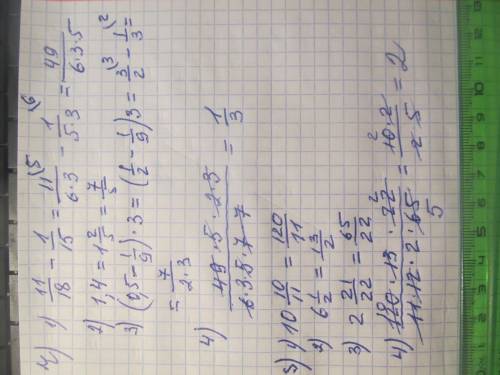 4) 1) 11/18 - 1/15 = 11\5/6·3 - 1\6/5·3 = 49/6·3·5
2) 1,4 = 1 2/5 = 7/5
3) (0,5 - 1/9)·3 = (1/2 - 1/9)3 = 3\3/2 - 1\2/3 =
= 7/2·3
4) 49·5·2·3/6·3·5·7·7 = 1/3
5) 1) 10 10/11 = 120/11
2) 6 1/2 = 13/2
3) 2 21/22 = 65/22
4) 120·13·22/11·12·2·65 = 10·2/2·5 = 2